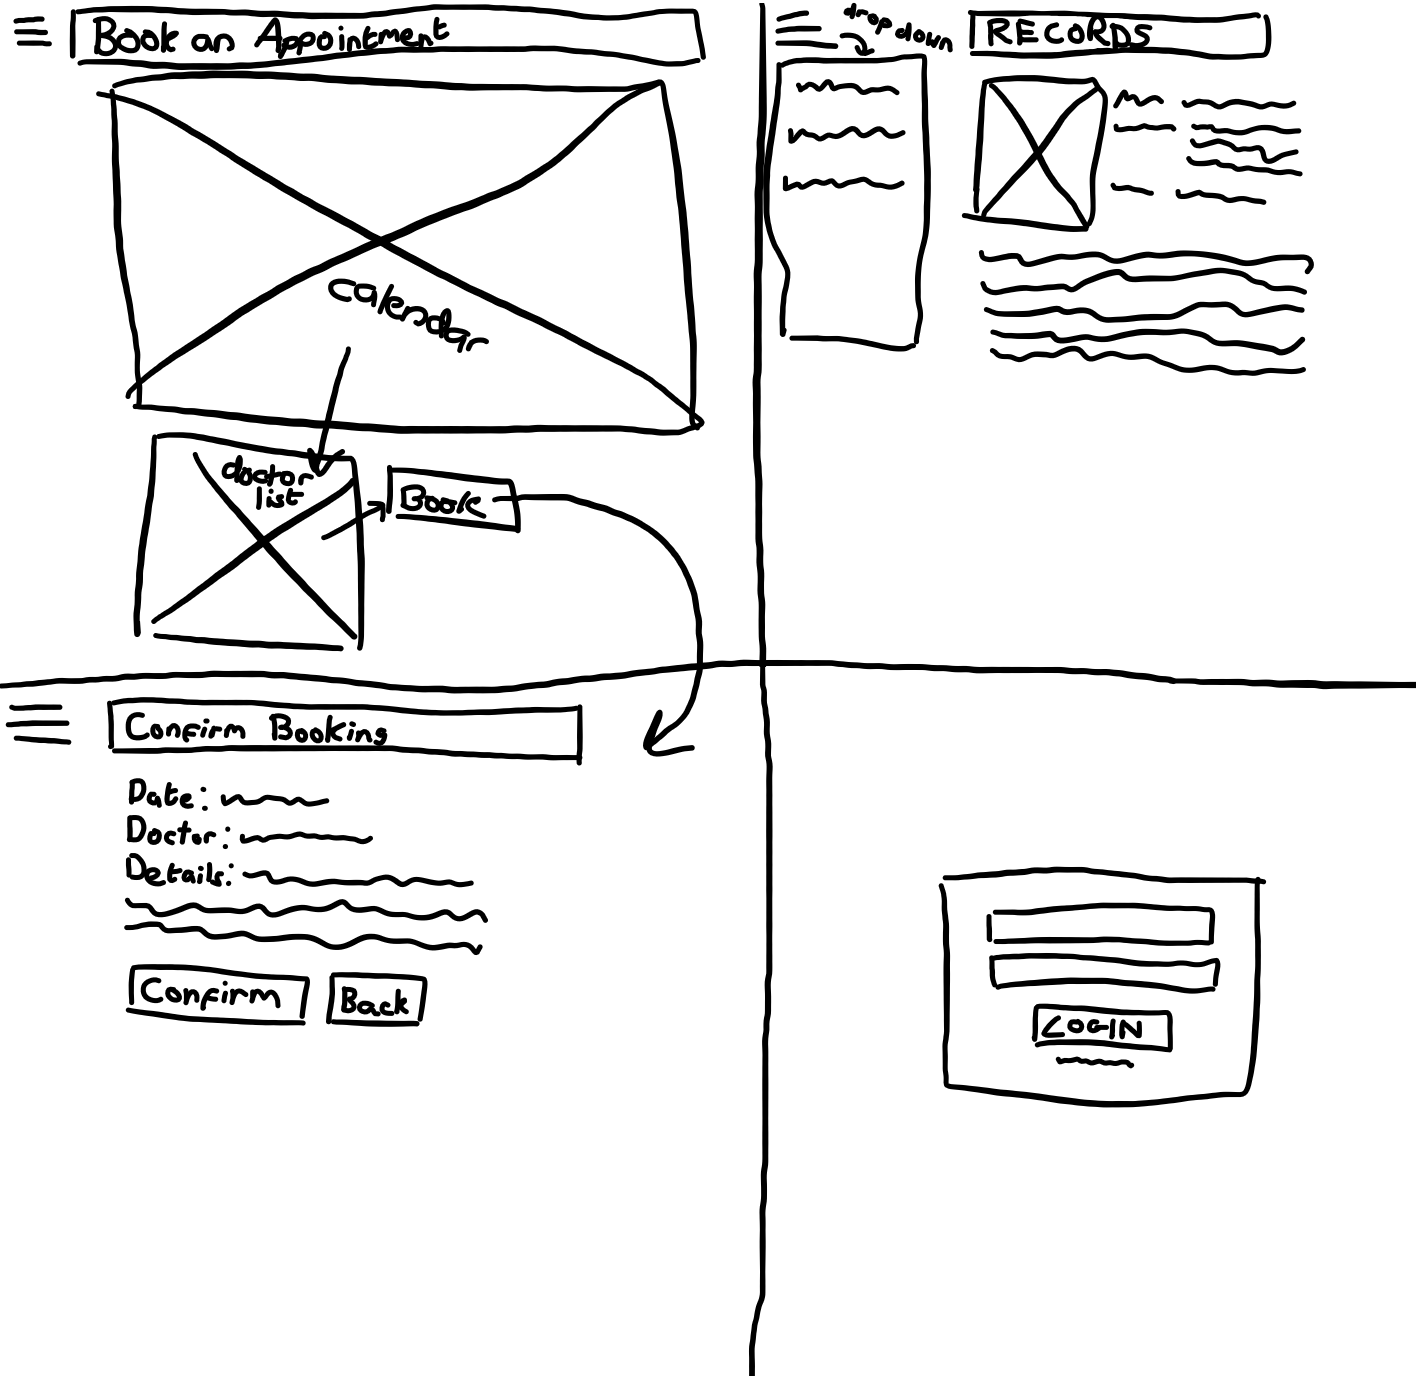 Book an Appointment
calendar
doctor
list
Book
dropdown
RECORDS
Confirm Booking
Date:
Doctor:
Details:
Confirm
Back
LOGIN